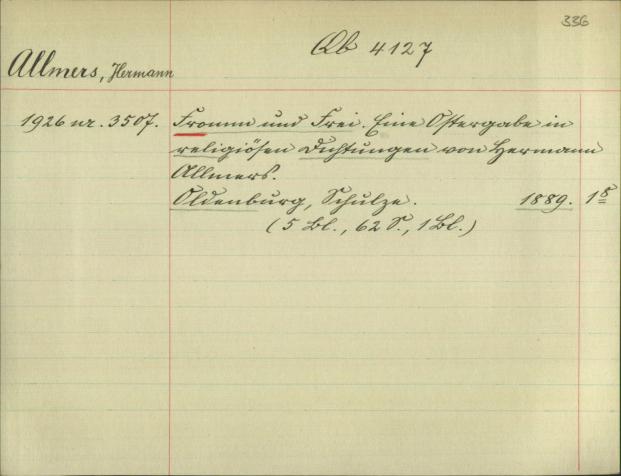 336
Qb 4127
Allmers, Hermann
1926 nr. 3507. Fromm und Frei. Eine Ostergabe in
religiösen Dichtungen von Hermann
Allmers.
Oldenburg, Schulze. 1889. 1 8
(5 Bl., 62 S., 1 Bl.)